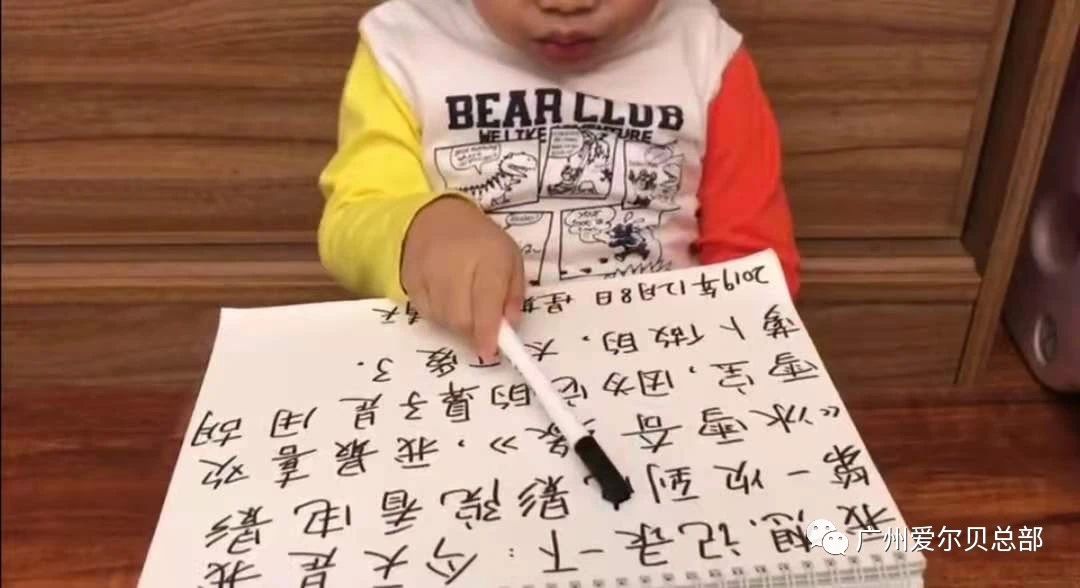 BEAR CLUB
WE LIKE ADVENTURE
我想记录一下：今天是我
第一次到电影院看电影
《冰雪奇缘》，我最喜欢
雪宝，因为它的鼻子是用胡
萝卜做的，太可爱了.
2019年12月8日 星期 天
广州爱尔贝总部